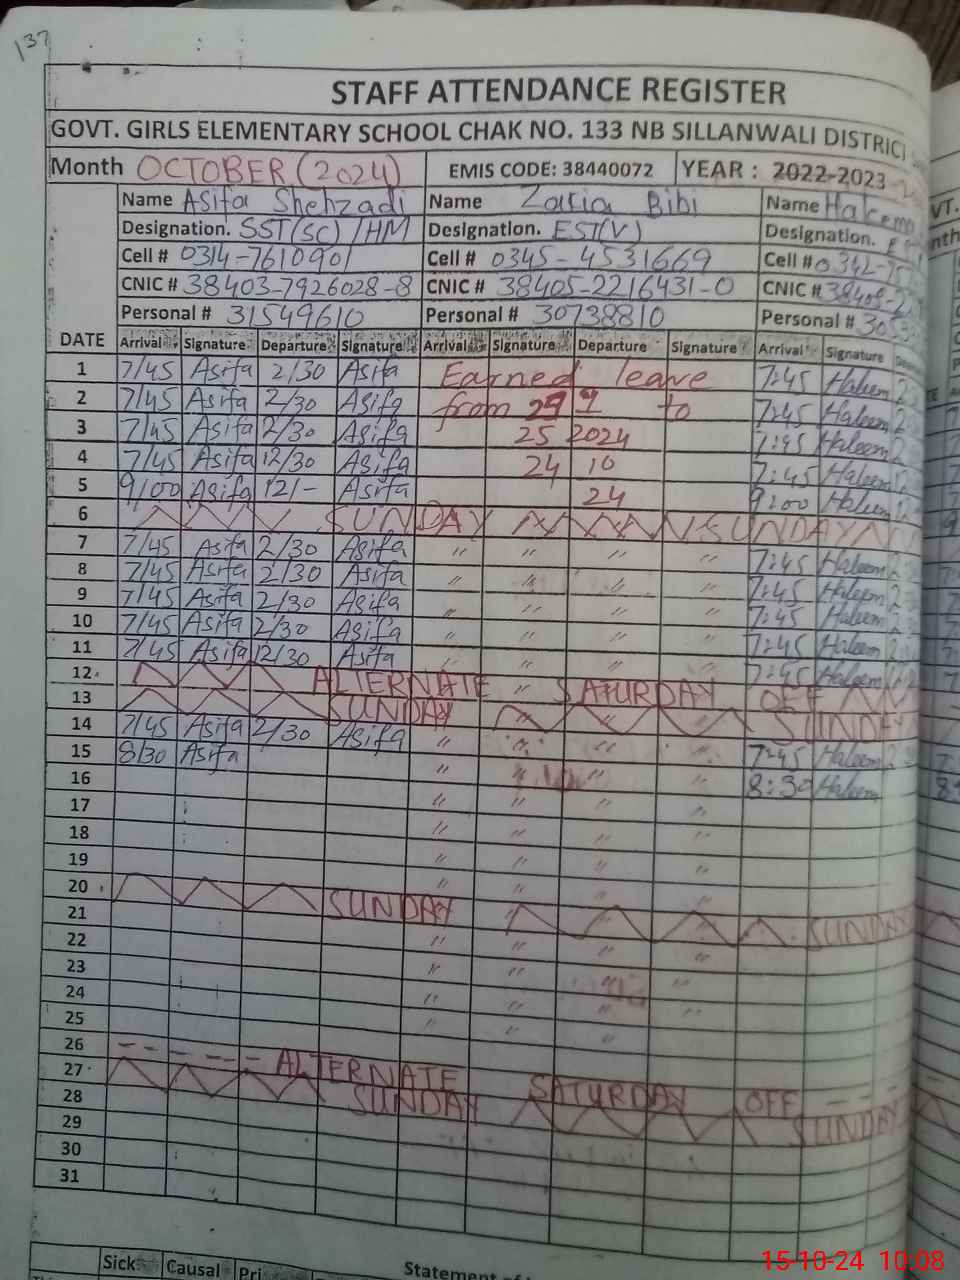 137
STAFF ATTENDANCE REGISTER
GOVT. GIRLS ELEMENTARY SCHOOL CHAK NO. 133 NB SILLANWALI DISTRICT
Month OCTOBER (2024) EMIS CODE: 38440072 YEAR : 2022-2023
Name Asifa Shehzadi Name Zakia Bibi Name
Designation. SST(SC) /HM Designation. EST(V) Designation.
Cell # 0314-7610901 Cell # 0345-4531669 Cell # 0342-
CNIC # 38403-7926028-8 CNIC # 38405-2216431-0 CNIC #
Personal # 31549610 Personal # 30738810 Personal #
DATE Arrival Signature Departure Signature Arrival Signature Departure Signature Arrival Signature
1 7/45 Asifa 2/30 Asifa Earned leave 7:45 Haleem
2 7/45 Asifa 2/30 Asifa from 9 to 7:45 Haleem
3 7/45 Asifa 2/30 Asifa 25 2024 7:45 Haleem
4 7/45 Asifa 12/30 Asifa 24 10 7:45 Haleem
5 9/00 Asifa 12/- Asifa 24 9:00 Haleem
6 SUNDAY SUNDAY
7 7/45 Asifa 2/30 Asifa " " " " 7:45 Haleem
8 7/45 Asifa 2/30 Asifa " " " " 7:45 Haleem
9 7/45 Asifa 2/30 Asifa " " " " 7:45 Haleem
10 7/45 Asifa 2/30 Asifa " " " " 7:45 Haleem
11 7/45 Asifa 12/30 Asifa " " " " 7:45 Haleem
12 ALTERNATE " SATURDAY OFF
13 SUNDAY SUNDAY
14 7/45 Asifa 2/30 Asifa " " " " 7:45 Haleem
15 8/30 Asifa " " " " 8:30 Haleem
16 " " " "
17 " " " "
18 " " " "
19 " " " "
20 SUNDAY SUNDAY
21 " " " "
22 " " " "
23 " " " "
24 " " " "
25
26 ALTERNATE SATURDAY OFF
27 SUNDAY SUNDAY
28
29
30
31
Sick Causal Pri Statement of
15-10-24 10:08